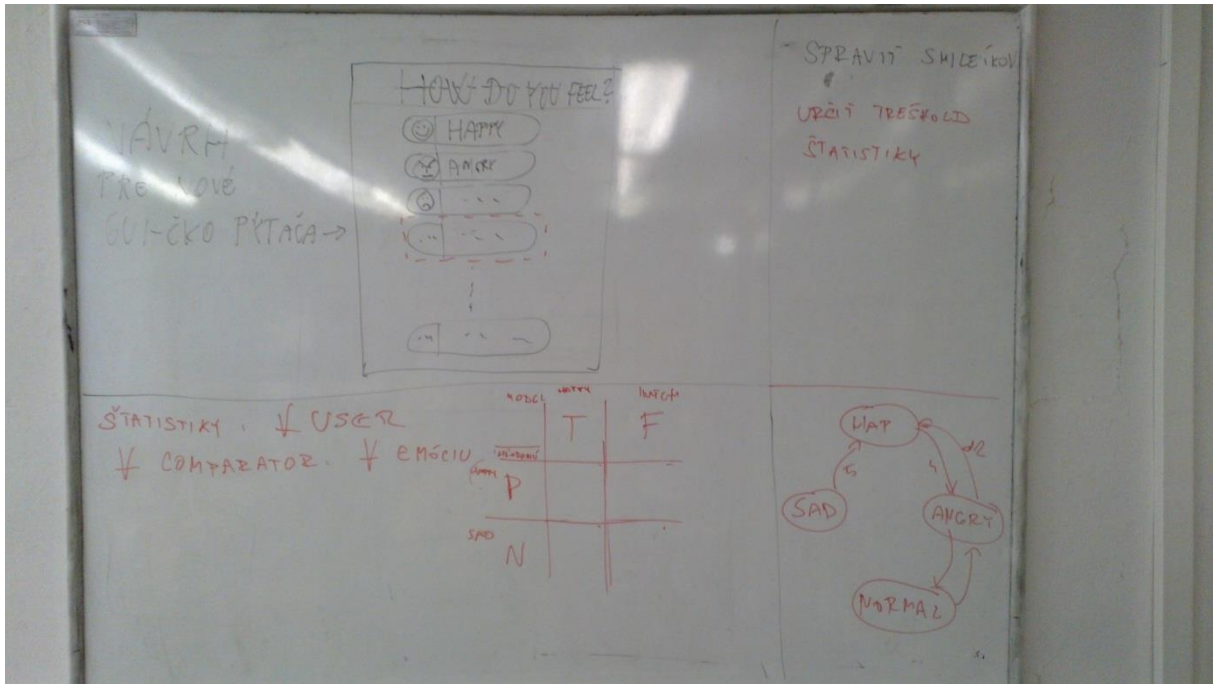 NÁVRH
PRE NOVÉ
GUI-ČKO PÝTAČA →
HOW DO YOU FEEL?
HAPPY
ANGRY
SPRAVIŤ SMILEÍKOV
URČIŤ TREŠHOLD
ŠTATISTIKY
ŠTATISTIKY. ∀ USER
∀ COMPARATOR. ∀ EMÓCIU
MODEL
HAPPY
T
F
HAPPY
P
SAD
N
HAP
SAD
ANGRY
NORMAL